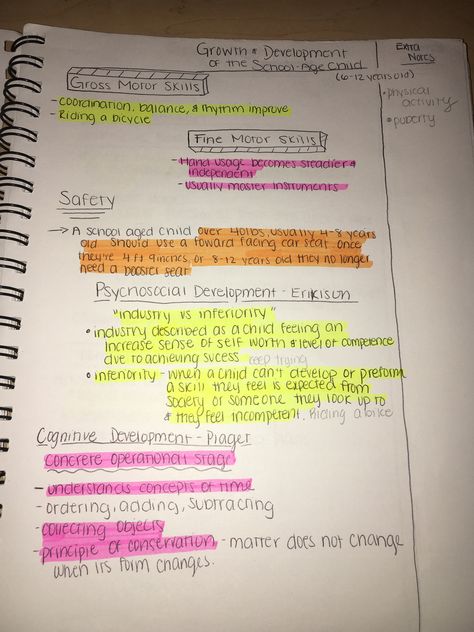 Growth & Development
of the School-Age Child
(6-12 years old)
Extra
Notes
• physical
activity
• puberty
Gross Motor Skills
- coordination, balance, & rhythm improve
- Riding a bicycle
Fine Motor Skills
- Hand usage becomes steadier &
independent
- usually master instruments
Safety
→ A school aged child over 40lbs, usually 4-8 years
old should use a foward facing car seat. Once
they're 4 ft 9 inches, or 8-12 years old they no longer
need a booster seat
Psychosocial Development - Erikison
"industry vs inferiority"
• industry described as a child feeling an
increase sense of self worth & level of competence
due to achieving sucess keep trying
• inferiority - when a child can't develop or preform
a skill they feel is expected from
society or someone they look up to
& they feel incompetent. Riding a bike
Cognitive Development - Piaget
concrete operational stage
- understands concepts of time
- ordering, adding, subtracting
- collecting objects
- principle of conservation - matter does not change
when its form changes.